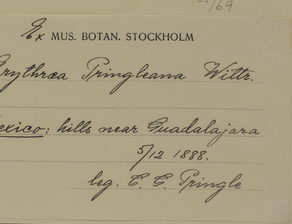 /69
Ex MUS. BOTAN. STOCKHOLM
rythræa Pringleana Wittr.
exico: hills near Guadalajara
5/12 1888.
leg. C. G. Pringle